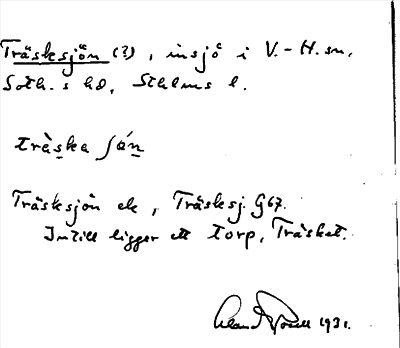 Träsksjön (?), insjö i V.-H. sn,
Soth.s hd, Sthlms l.
träska sjön
Träsksjön ek, Träsksj. G67.
Intill ligger ett torp, Träsket.
1931.